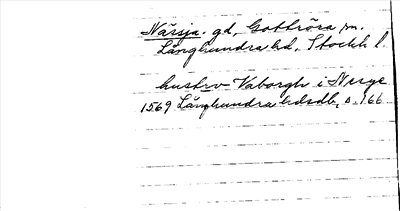 Närsja. gd, Gottröra sn.
Långhundra hd, Stockh l.
hustrv Vaborgh i Nerge
1569 Långhundra hdsdb, s. 166